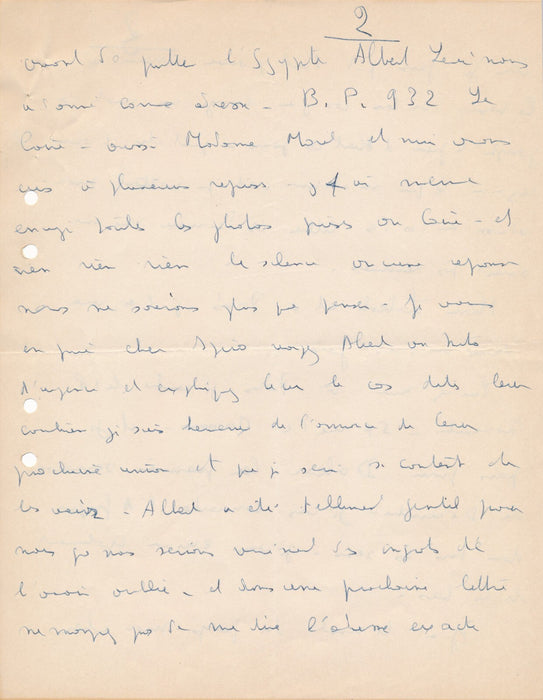 2
avant de quitter l'Egypte Albert Levi nous
a donné comme adresse - B. P. 932 Le
Caire - aussi Madame Morel et moi avons
écris à plusieurs reprises - j'ai même
envoyé toutes les photos prises au Caire - et
rien rien rien le silence aucune reponse
nous ne savons plus que penser - Je vous
en prie cher Spiro voyez Albert ou
d'urgence et expliquez leur le cas dites leur
combien je suis heureux de l'annonce de leur
prochaine union et que je serai si content de
les revoir - Albert a été tellement gentil pour
nous que nous serions vraiment des ingrats de
l'avoir oublié - et dans une prochaine lettre
ne manquez pas de me dire l'adresse exacte